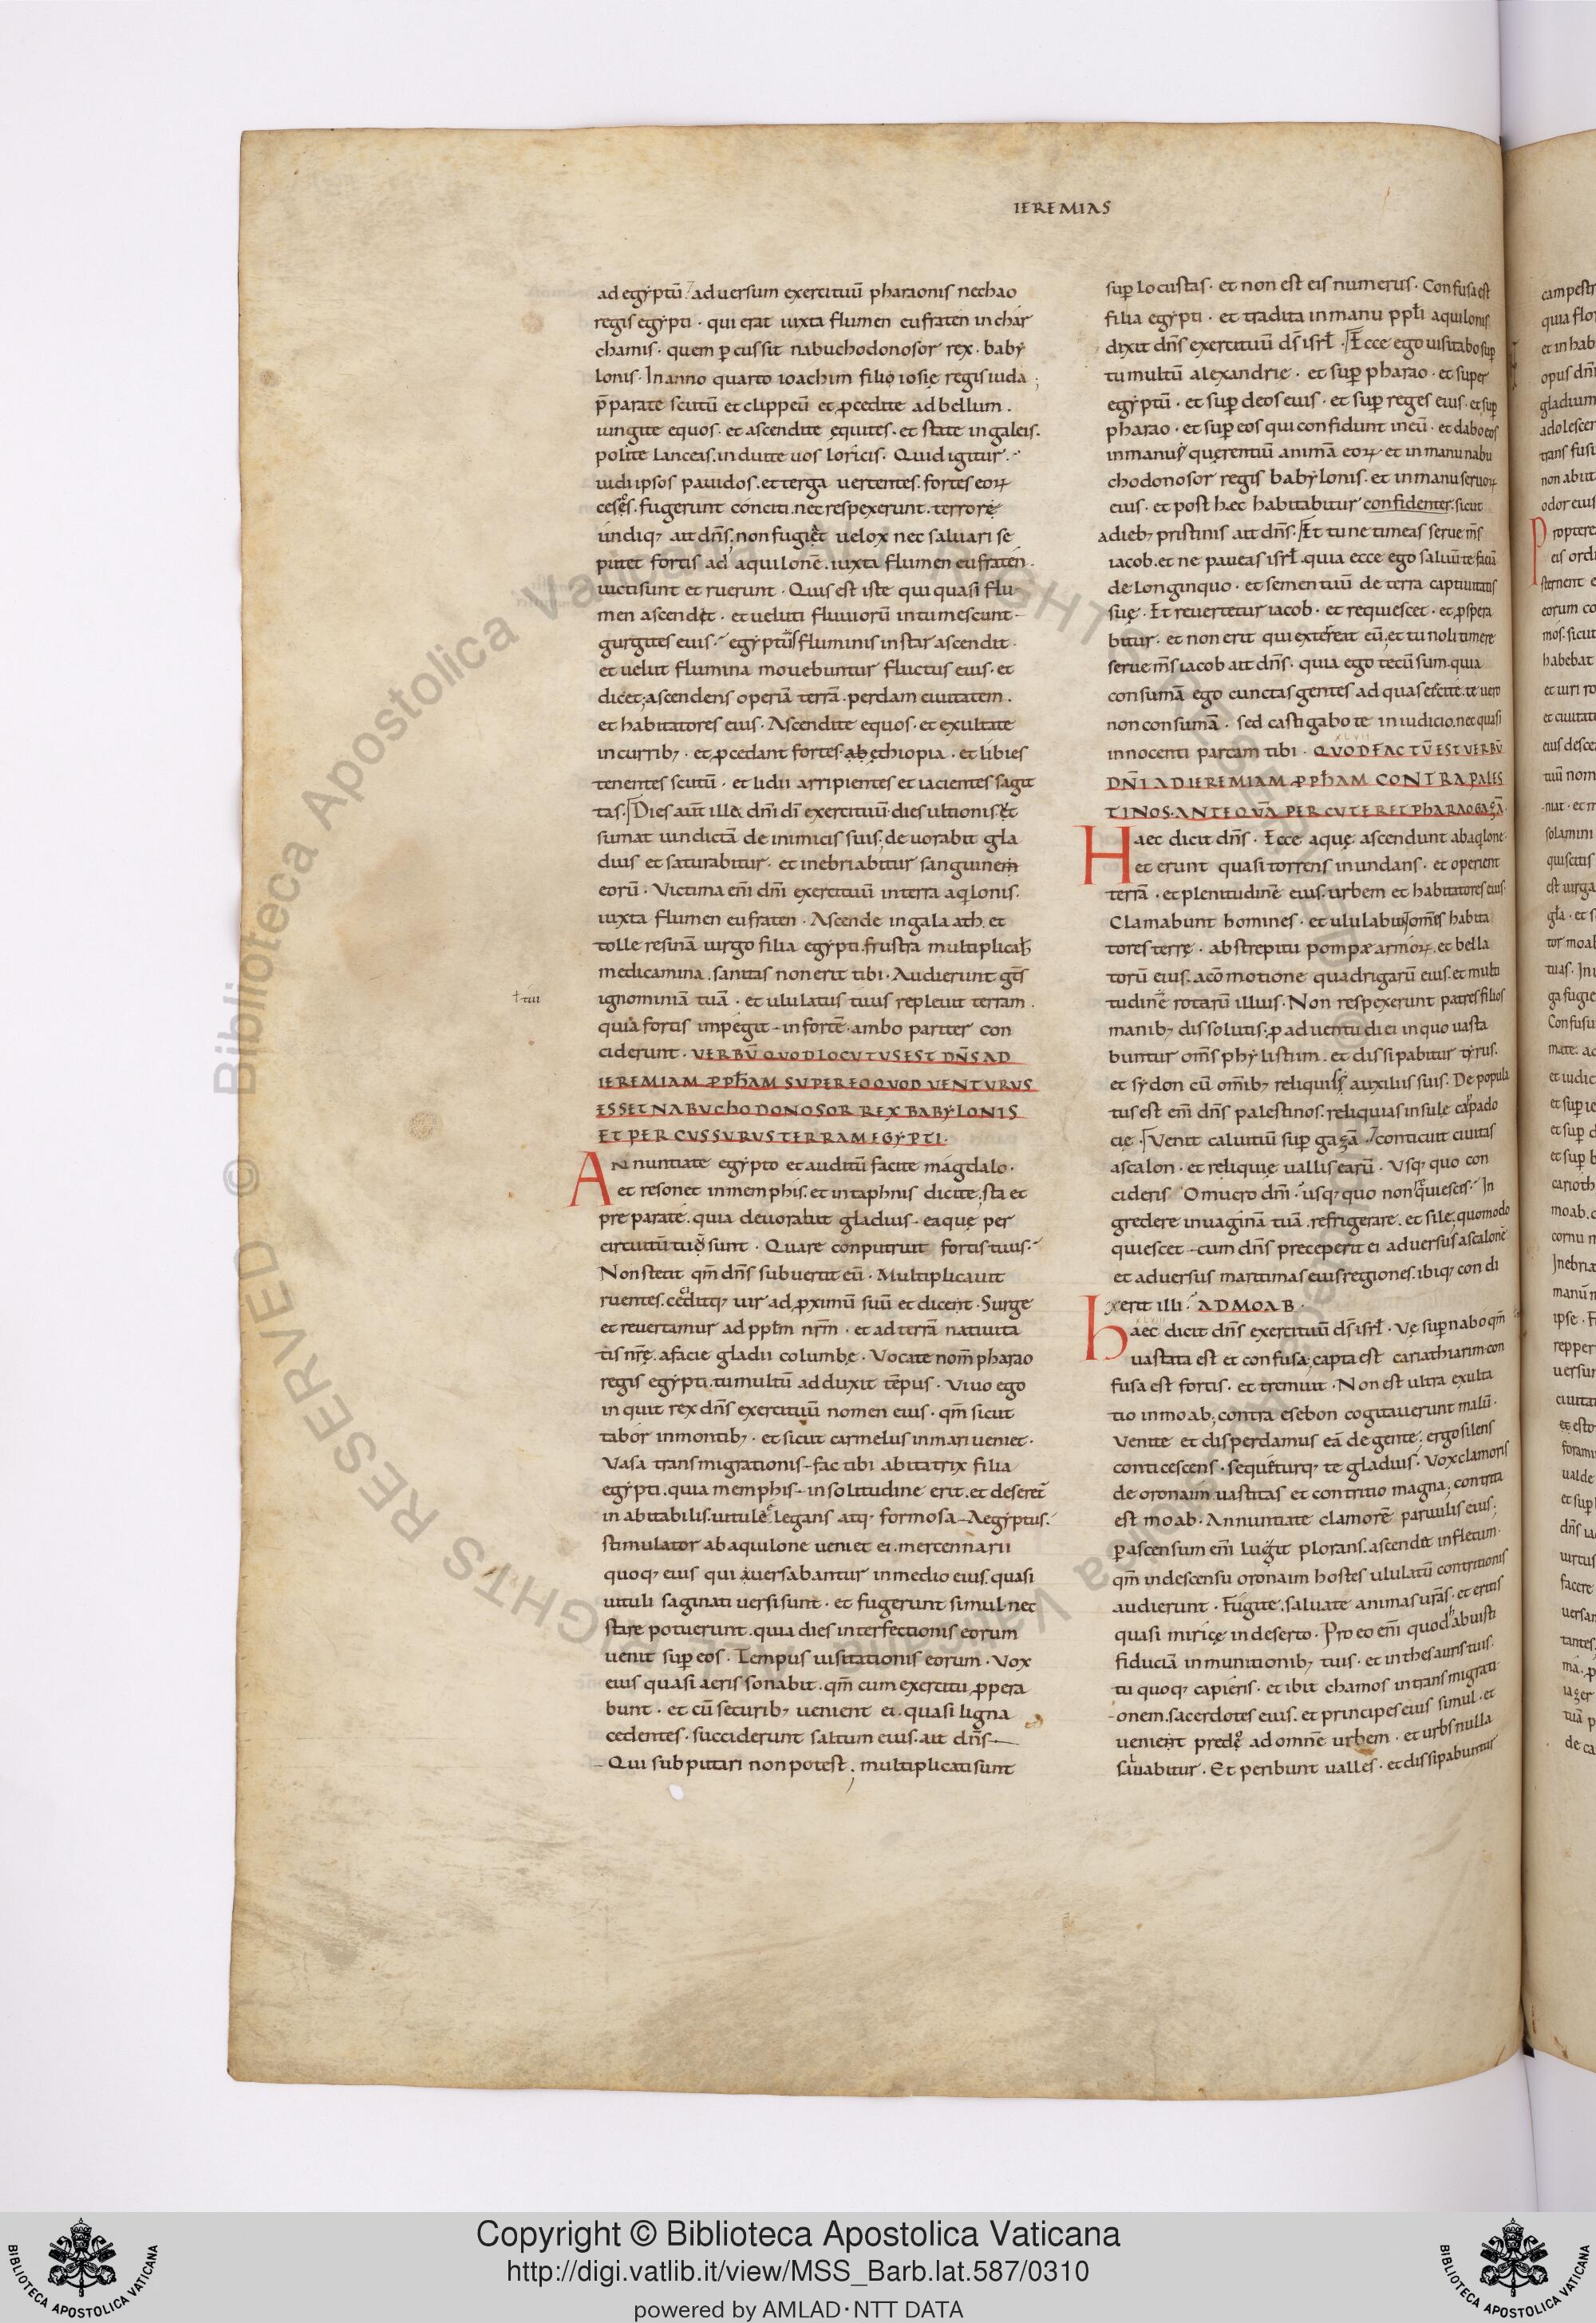 IEREMIAS
ad egyptū· aduersum exercituū pharaonis nechao
regis egypti · qui erat iuxta flumen eufraten in char
chamis · quem p̄cussit nabuchodonosor rex · baby
lonis · In anno quarto ioachim filio iosię regis iuda ;
p̄parate scutū et clippeū et ꝓcedite ad bellum .
iungite equos · et ascendite ęquites · et state in galeis.
polite lanceis. induite uos loricis. Quid igitur ·
uidi ipsos pauidos. et terga uertentes. fortes eoꝝ
cesos. fugerunt conciti. nec respexerunt. terror ę
undiq; ait dn̄s. non fugiet uelox nec saluari se
putet fortis ad aquilonē. iuxta flumen eufraten.
uicti sunt et ruerunt · Quis est iste qui quasi flu
men ascendit · et ueluti fluuiorū intumescunt
gurgites eius · egyptus fluminis instar ascendit ·
et uelut flumina mouebuntur fluctus eius · et
dicet; ascendens operiā terrā. perdam ciuitatem .
et habitatores eius · Ascendite equos · et exultate
in currib; · et ꝓcedant fortes · ab ęthiopia · et libies
tenentes scutū · et lidii arripientes et iacientes sagit
tas. Dies aut̄ ille dn̄i dī exercituū· dies ultionis. et
sumat uindictā de inimicis suis; deuorabit gla
dius et saturabitur · et inebriabitur sanguinem
eorū · Victima em̄ dn̄i exercituū in terra aq̇lonis.
iuxta flumen eufraten · Ascende in galaath. et
tolle resinā uirgo filia egypti. frustra multiplicab̄
medicamina. sanitas non erit tibi · Audierunt gn̄s
ignominiā tuā · et ululatus tuus repleuit terram .
quia fortis impegit in fortē· ambo pariter con
ciderunt · VERBŪ QUOD LOCUTUS EST DN̄S AD
IEREMIAM ꝒPH̄AM SUPER EO QUOD UENTURUS
ESSET NABUCHODONOSOR REX BABYLONIS
ET PERCUSSURUS TERRAM EGYPTI.
Annuntiate egypto et auditū facite magdalo ·
et resonet in memphis. et in taphnis dicite. sta et
prepara te. quia deuorabit gladius · ea quę per
circuitū tuū sunt · Quare conputruit fortis tuus ·
Non stetit qm̄ dn̄s subuertit eū · Multiplicauit
ruentes. ceciditq; uir ad ꝓximū suū et dicent · Surge
et reuertamur ad ppl̄m nr̄m · et ad terrā natiuita
tis nr̄ę. a facie gladii columbę · Vocate nom̄ pharao
regis egypti. tumultū adduxit tēpus · Viuo ego
inquit rex dn̄s exercituū nomen eius · qm̄ sicut
tabor in montib; · et sicut carmelus in mari ueniet ·
Vasa transmigrationis fac tibi abitatrix filia
egypti. quia memphis in solitudine erit. et deseret̄
inabitabilis. uitula elegans atq; formosa Aegyptus.
stimulator ab aquilone ueniet ei. mercennarii
quoq; eius qui uersabantur in medio eius. quasi
uituli saginati uersi sunt · et fugerunt simul. nec
stare potuerunt. quia dies interfectionis eorum
uenit sup̄ eos · Tempus uisitationis eorum · Vox
eius quasi aeris sonabit. qm̄ cum exercitu ꝓpera
bunt · et cū securib; uenient ei. quasi ligna
cedentes · succiderunt saltum eius. ait dn̄s
Qui subputari non potest; multiplicati sunt
sup̄ locustas · et non est eis numerus. Confusa est
filia egypti · et tradita in manu ppl̄i aquilonis
dixit dn̄s exercituū ds̄ isrl̄ · Ecce ego uisitabo sup̄
tumultū alexandrie · et sup̄ pharao · et super
egyptū · et sup̄ deos eius · et sup̄ reges eius · et sup̄
pharao · et sup̄ eos qui confidunt in eū · et dabo eos
in manus quęrentiū animā eoꝝ · et in manu nabu
chodonosor regis babylonis. et in manu seruoꝝ
eius · et post hæc habitabitur confidenter. sicut
a dieb; pristinis ait dn̄s · Et tu ne timeas serue m̄s
iacob. et ne paueas isrl̄. quia ecce ego saluū te faciā
de longinquo · et semen tuū de terra captiuitatis
suę · Et reuertetur iacob · et requiescet · et ꝓspera
bitur · et non erit qui exterreat eū. et tu noli timere
serue m̄s iacob ait dn̄s · quia ego tecū sum. quia
consumā ego cunctas gentes ad quas eieci te. te uero
non consumā · sed castigabo te in iudicio. nec quasi
innocenti parcam tibi · QUOD FACTŪ EST UERBŪ
XLVII
DN̄I AD IEREMIAM ꝒPH̄AM CONTRA PALES
TINOS. ANTEQUĀ PERCUTERET PHARAO GAZĀ.
Haec dicit dn̄s · Ecce aquę ascendunt ab aq̇lone.
et erunt quasi torrens inundans · et operient
terrā · et plenitudinē eius. urbem et habitatores eius.
Clamabunt homines · et ululabunt om̄s habita
tores terrę · a b strepitu pompæ armoꝝ. et bella
torū eius. a cōmotione quadrigarū eius. et multi
tudinē rotarū illius · Non respexerunt patres filios
manib; dissolutis; p̄ aduentu diei in quo uasta
buntur om̄s phylistiim. et dissipabitur tyrus.
et sydon cū om̄ib; reliquis auxiliis suis. De popula
tus est em̄ dn̄s palestinos. reliquias insulę cappado
cię · Venit caluitiū sup̄ gazā · conticuit ciuitas
ascalon · et reliquię uallis earū · Vsq; quo con
cideris O mucro dn̄i · usq; quo non quiesces · In
gredere in uaginā tuā. refrigerare. et sile; quomodo
quiescet cum dn̄s preceperit ei aduersus ascalonē
et aduersus maritimas eius regiones. ibiq; condi
xerit illi · AD MOAB ·
XLVIII
haec dicit dn̄s exercituū ds̄ isrl̄ · Vę sup̄ nabo qm̄
uastata est et confusa; capta est cariathiarim. con
fusa est fortis · et tremuit · Non est ultra exulta
tio in moab; contra esebon cogitauerunt malū ·
Venite et disperdamus eā de gente; ergo silens
conticescens · sequeturq; te gladius · Vox clamoris
de oronaim uastitas et contritio magna; contrita
est moab · Annuntiate clamorē paruulis eius;
p̄ ascensum em̄ lugit plorans. ascendit in fletum.
qm̄ in descensu oronaim hostes ululatū contritionis
audierunt · Fugite. saluate animas ur̄as · et eritis
quasi miricę in deserto · Pro eo em̄ quod habuisti
fiduciā in munitionib; tuis · et in thesauris tuis.
tu quoq; capieris · et ibit chamos in transmigrati
onem. sacerdotes eius. et principes eius simul · et
ueniet predo ad omnē urbem · et urbs nulla
saluabitur · Et peribunt ualles · et dissipabuntur
† tui
campestr
quia flo
et in hab
opus dn̄i
gladium
adolescen
trans fusu
non abiit
odor eius
Proptere
eis ordi
sternent e
eorum co
mos. sicut
habebat
Copyright © Biblioteca Apostolica Vaticana
http://digi.vatlib.it/view/MSS_Barb.lat.587/0310
powered by AMLAD·NTT DATA